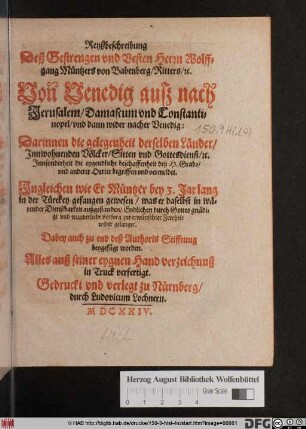 Reyßbeschreibung
Deß Gestrengen vnd Vesten Herrn Wolff-
gang Müntzers von Babenberg/Ritters/ꝛc.
Von Venedig auß nach
Jerusalem/Damascum vnd Constanti-
nopel/vnd dann wider nacher Venedig:
Darinnen die gelegenheit derselben Länder/
Innwohnenden Völcker/Sitten vnd Gottesdienst/ꝛc.
Innsonderheit die eygendliche beschaffenheit deß H. Grabs/
vnd anderer Oerter begriffen vnd vermeldt.
Ingleichen wie Er Müntzer bey 3. Jar lang
in der Türckey gefangen gewesen/was er daselbst in wä-
render Dienstbarkeit außgestanden/Endlichen durch Gottes gnädi-
ge vnd wunderliche
wider gelanget.
Dabey auch zu end deß Authoris Stifftung
beygefügt worden.
Alles auß seiner eygnen Hand verzeichnuß
in Truck verfertigt.
Gedruckt vnd verlegt zu Nürnberg/
durch Ludovicum Lochnern.
MDCXXIV.
150.9 Hist.
Herzog August Bibliothek Wolfenbüttel
Gray Scale
© HAB http://diglib.hab.de/drucke/150-9-hist-4s/start.htm?image=00001
DFG